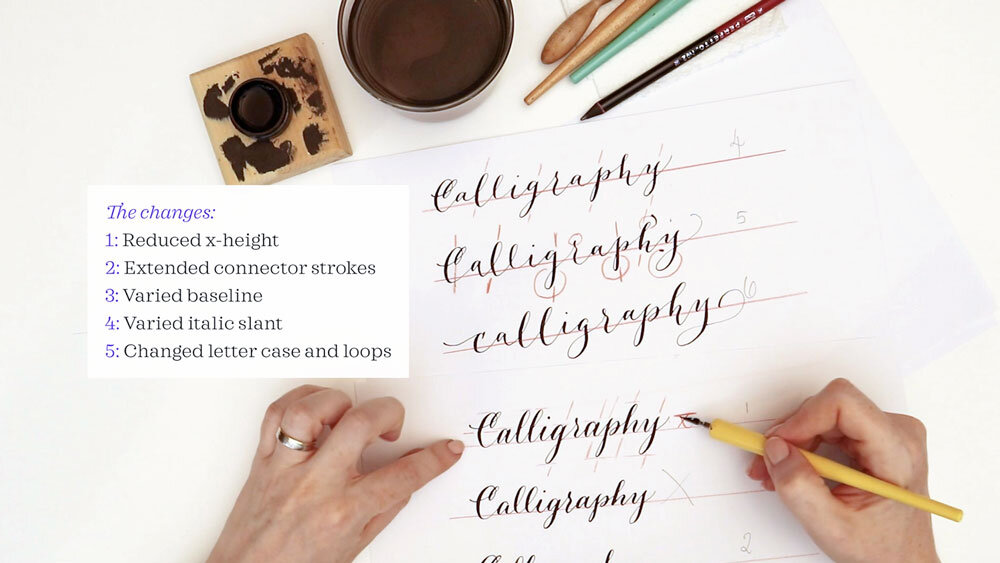 The changes:
1: Reduced x-height
2: Extended connector strokes
3: Varied baseline
4: Varied italic slant
5: Changed letter case and loops
PERFETTO
Calligraphy 4
Calligraphy 5
calligraphy 6
Calligraphy x 1
Calligraphy X
2